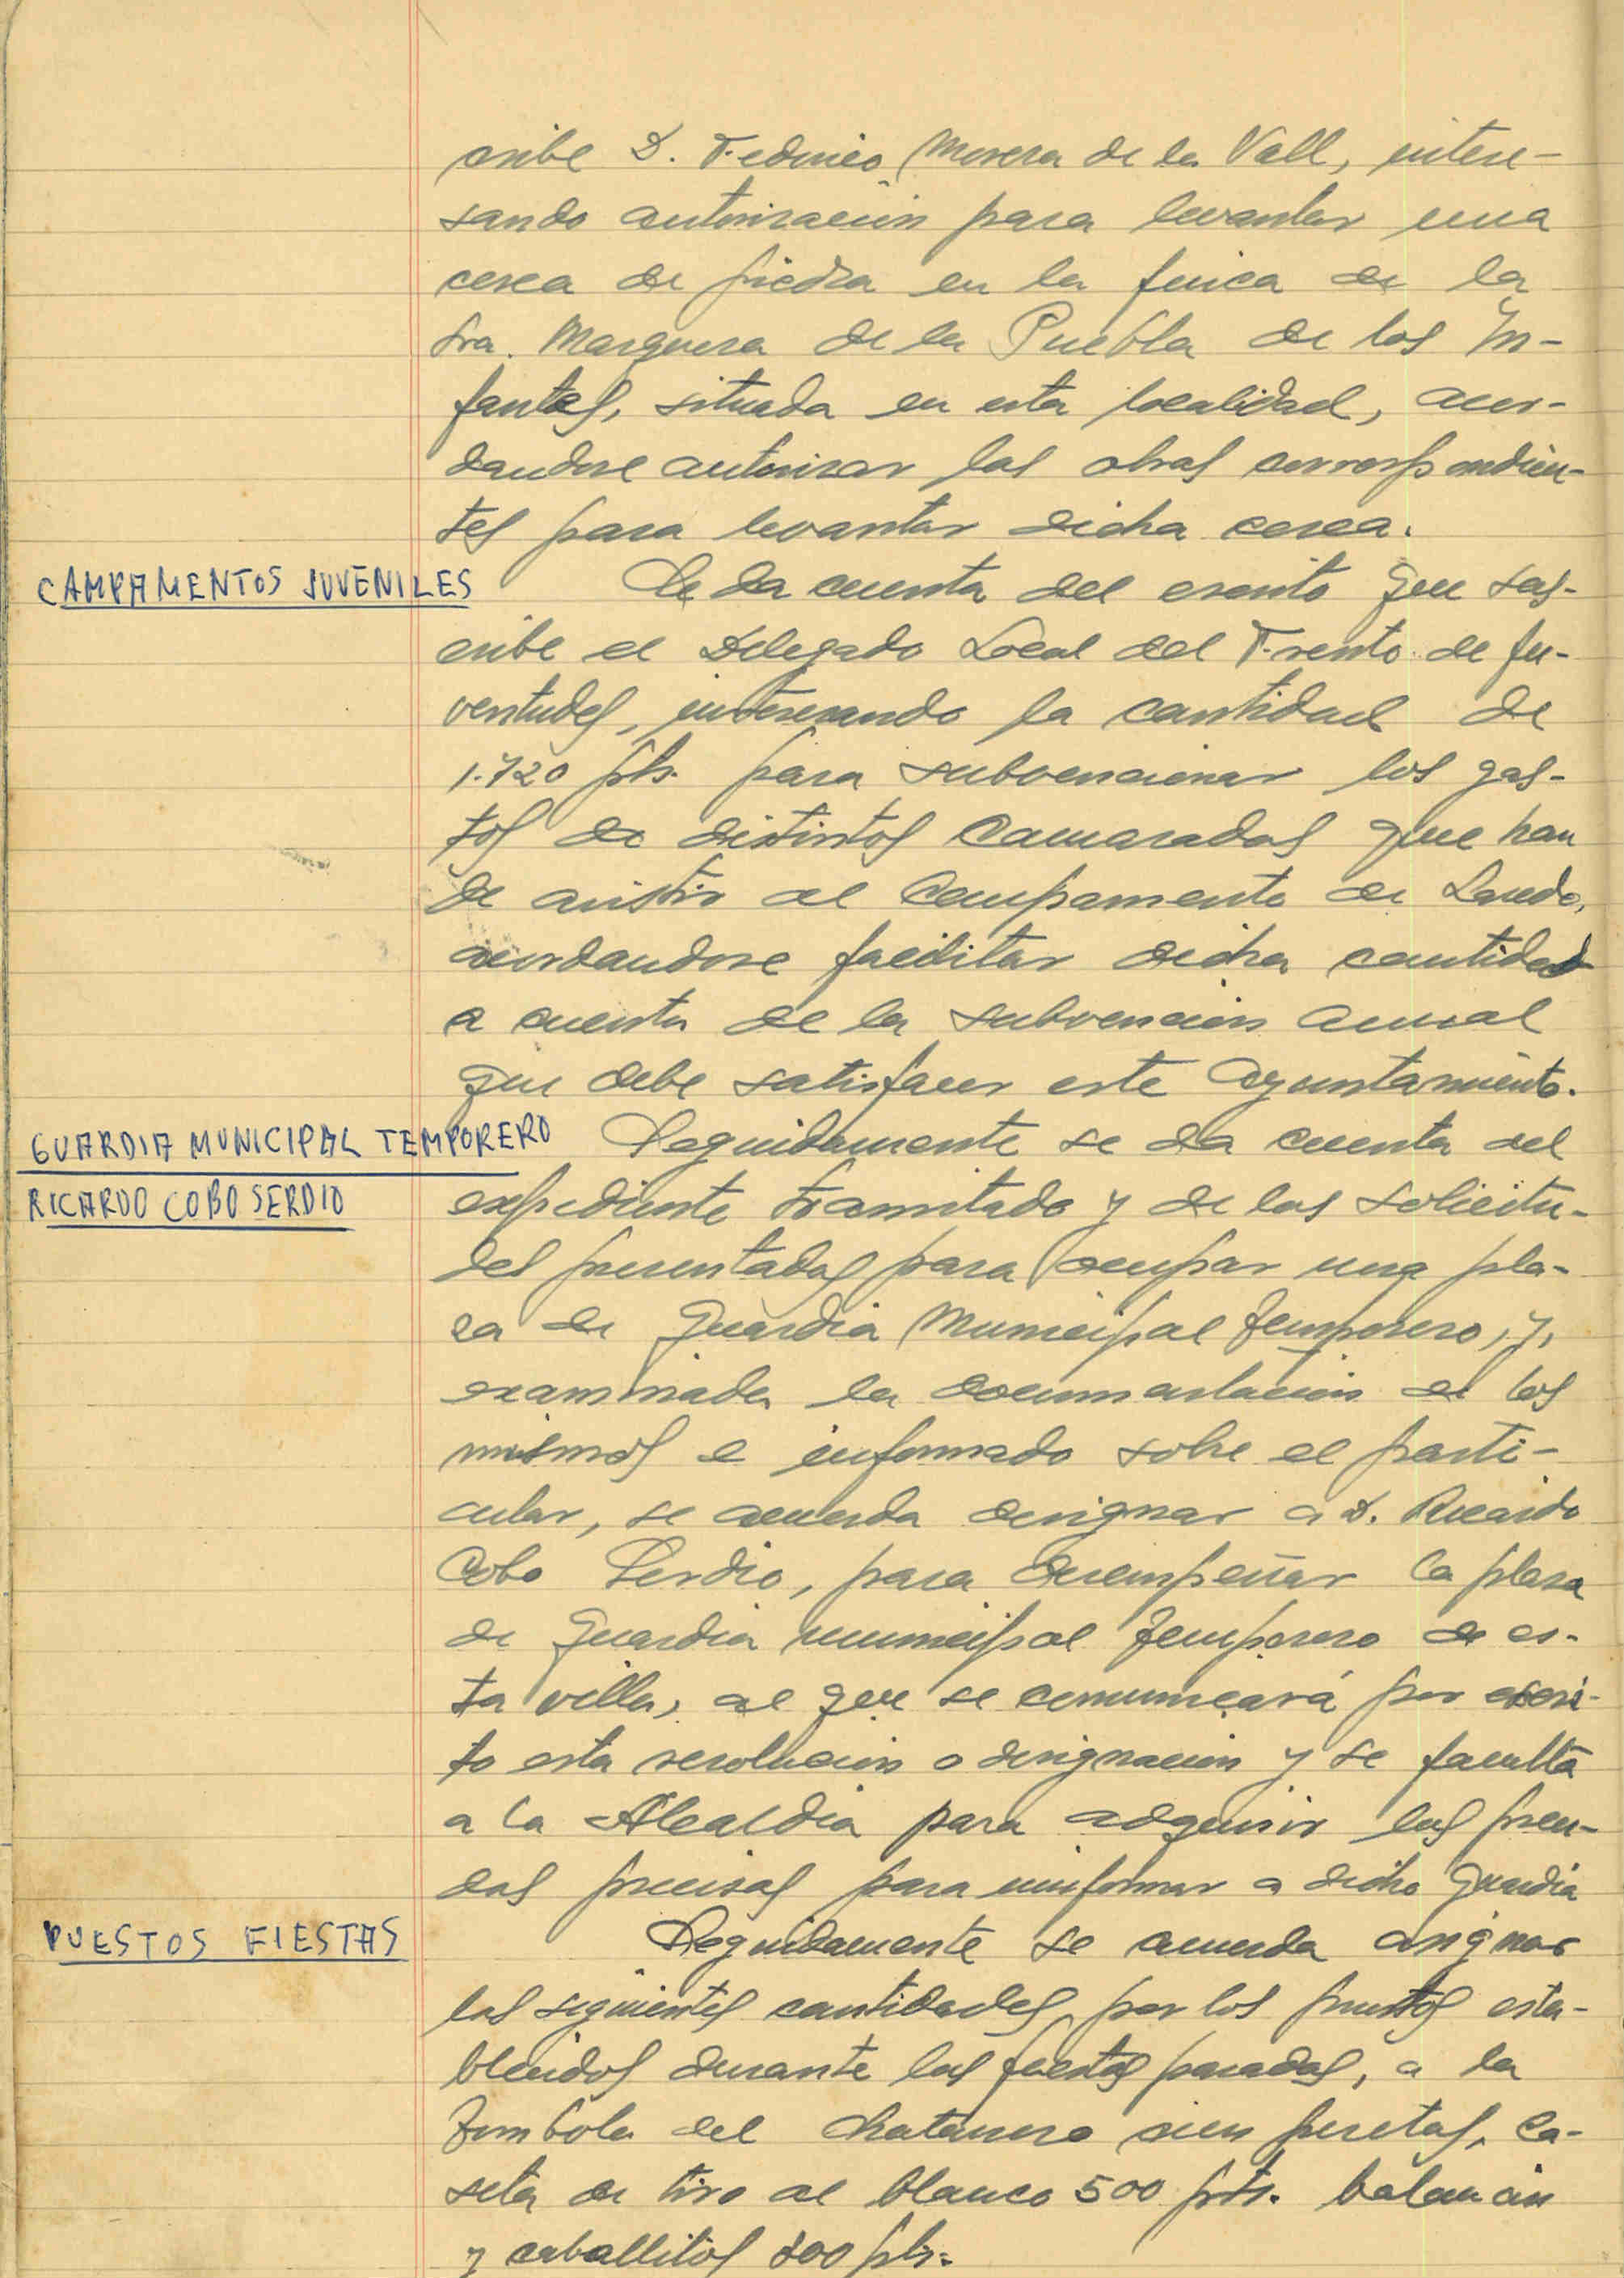 cribe D. Federico Morera de la Vall, intere-
sando autorización para levantar una
cerca de piedra en la finca de la
Sra. Marquesa de la Puebla de los In-
fantes, situada en esta localidad, acor-
dandose autorizar las obras correspondien-
tes para levantar dicha cerca.
CAMPAMENTOS JUVENILES
Se da cuenta del escrito que sus-
cribe el Delegado Local del Frente de Ju-
ventudes, interesando la cantidad de
1.720 pts. para subvencionar los gas-
tos de distintos Camaradas que han
de asistir al Campamento de Laredo,
acordandose facilitar dicha cantidad
a cuenta de la subvencion anual
que debe satisfacer este Ayuntamiento.
GUARDIA MUNICIPAL TEMPORERO
RICARDO COBO SERDIO
Seguidamente se da cuenta del
expediente tramitado y de las solicitu-
des presentadas para ocupar una pla-
za de Guardia Municipal Temporero, y,
examinada la documentación de los
mismos e informado sobre el parti-
cular, se acuerda designar a D. Ricardo
Cobo Serdio, para desempeñar la plaza
de Guardia municipal Temporero de es-
ta villa, al que se comunicará por escri-
to esta resolución o designacion y se faculta
a la Alcaldia para adquirir las pren-
das precisas para uniformar a dicho Guardia
PUESTOS FIESTAS
Seguidamente se acuerda asignar
las siguientes cantidades por los puestos esta-
blecidos durante las fiestas pasadas, a la
Tombola del chatarrero cien pesetas, Ca-
seta de tiro al blanco 500 pts. balancin
y caballitos 200 pts.